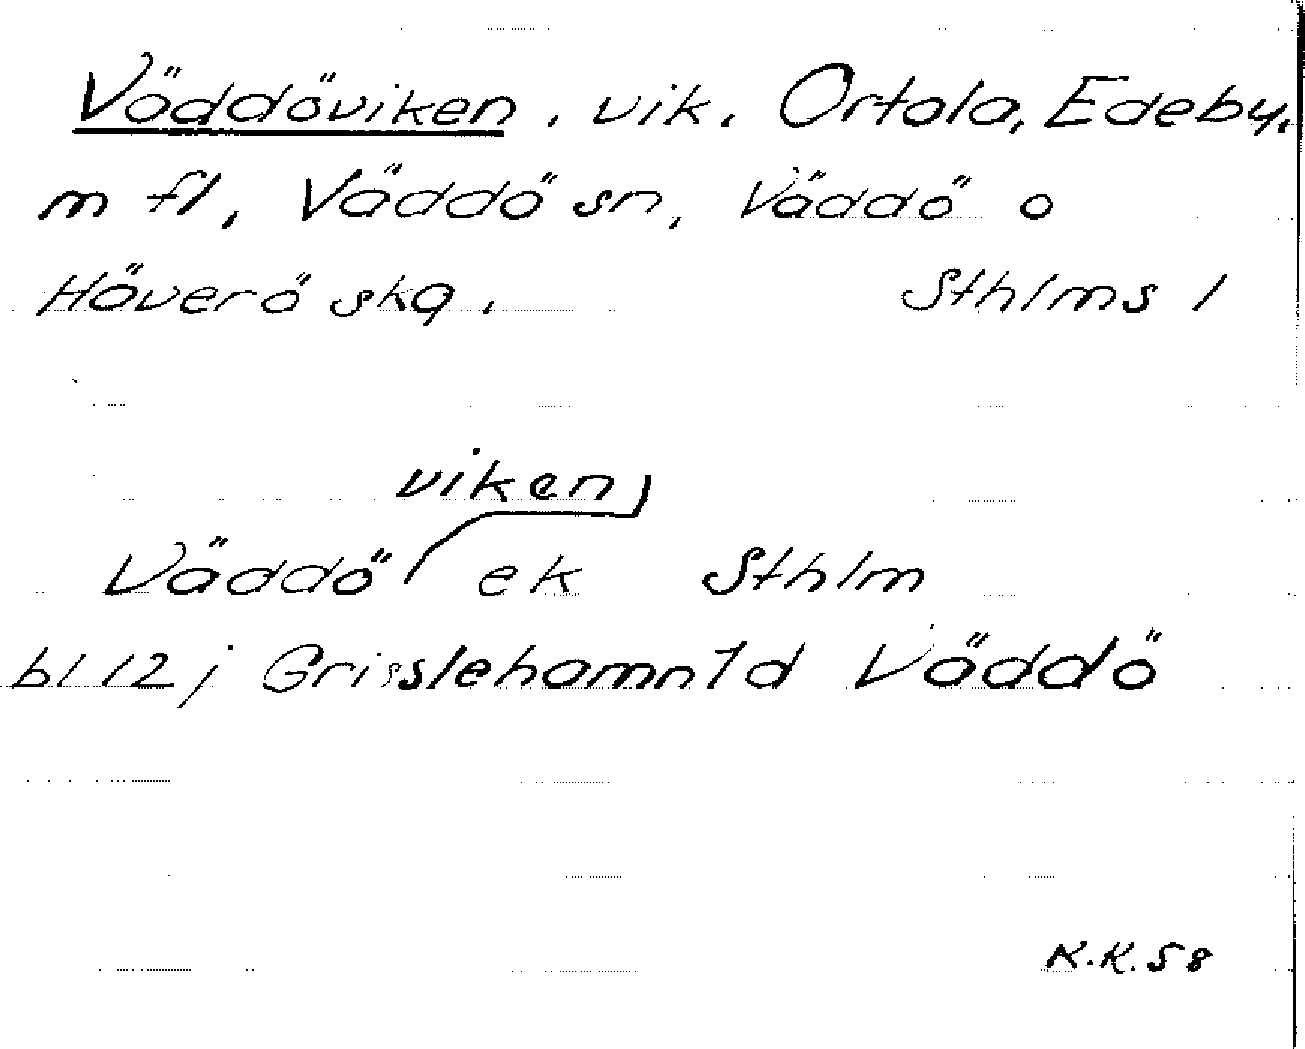 Väddöviken, vik, Ortala, Edeby,
m fl, Väddö sn, Väddö o
Häverö skg, Sthlms l
viken
Väddö ek Sthlm
bl 12; Grisslehamn 1d Väddö
K.K. 58